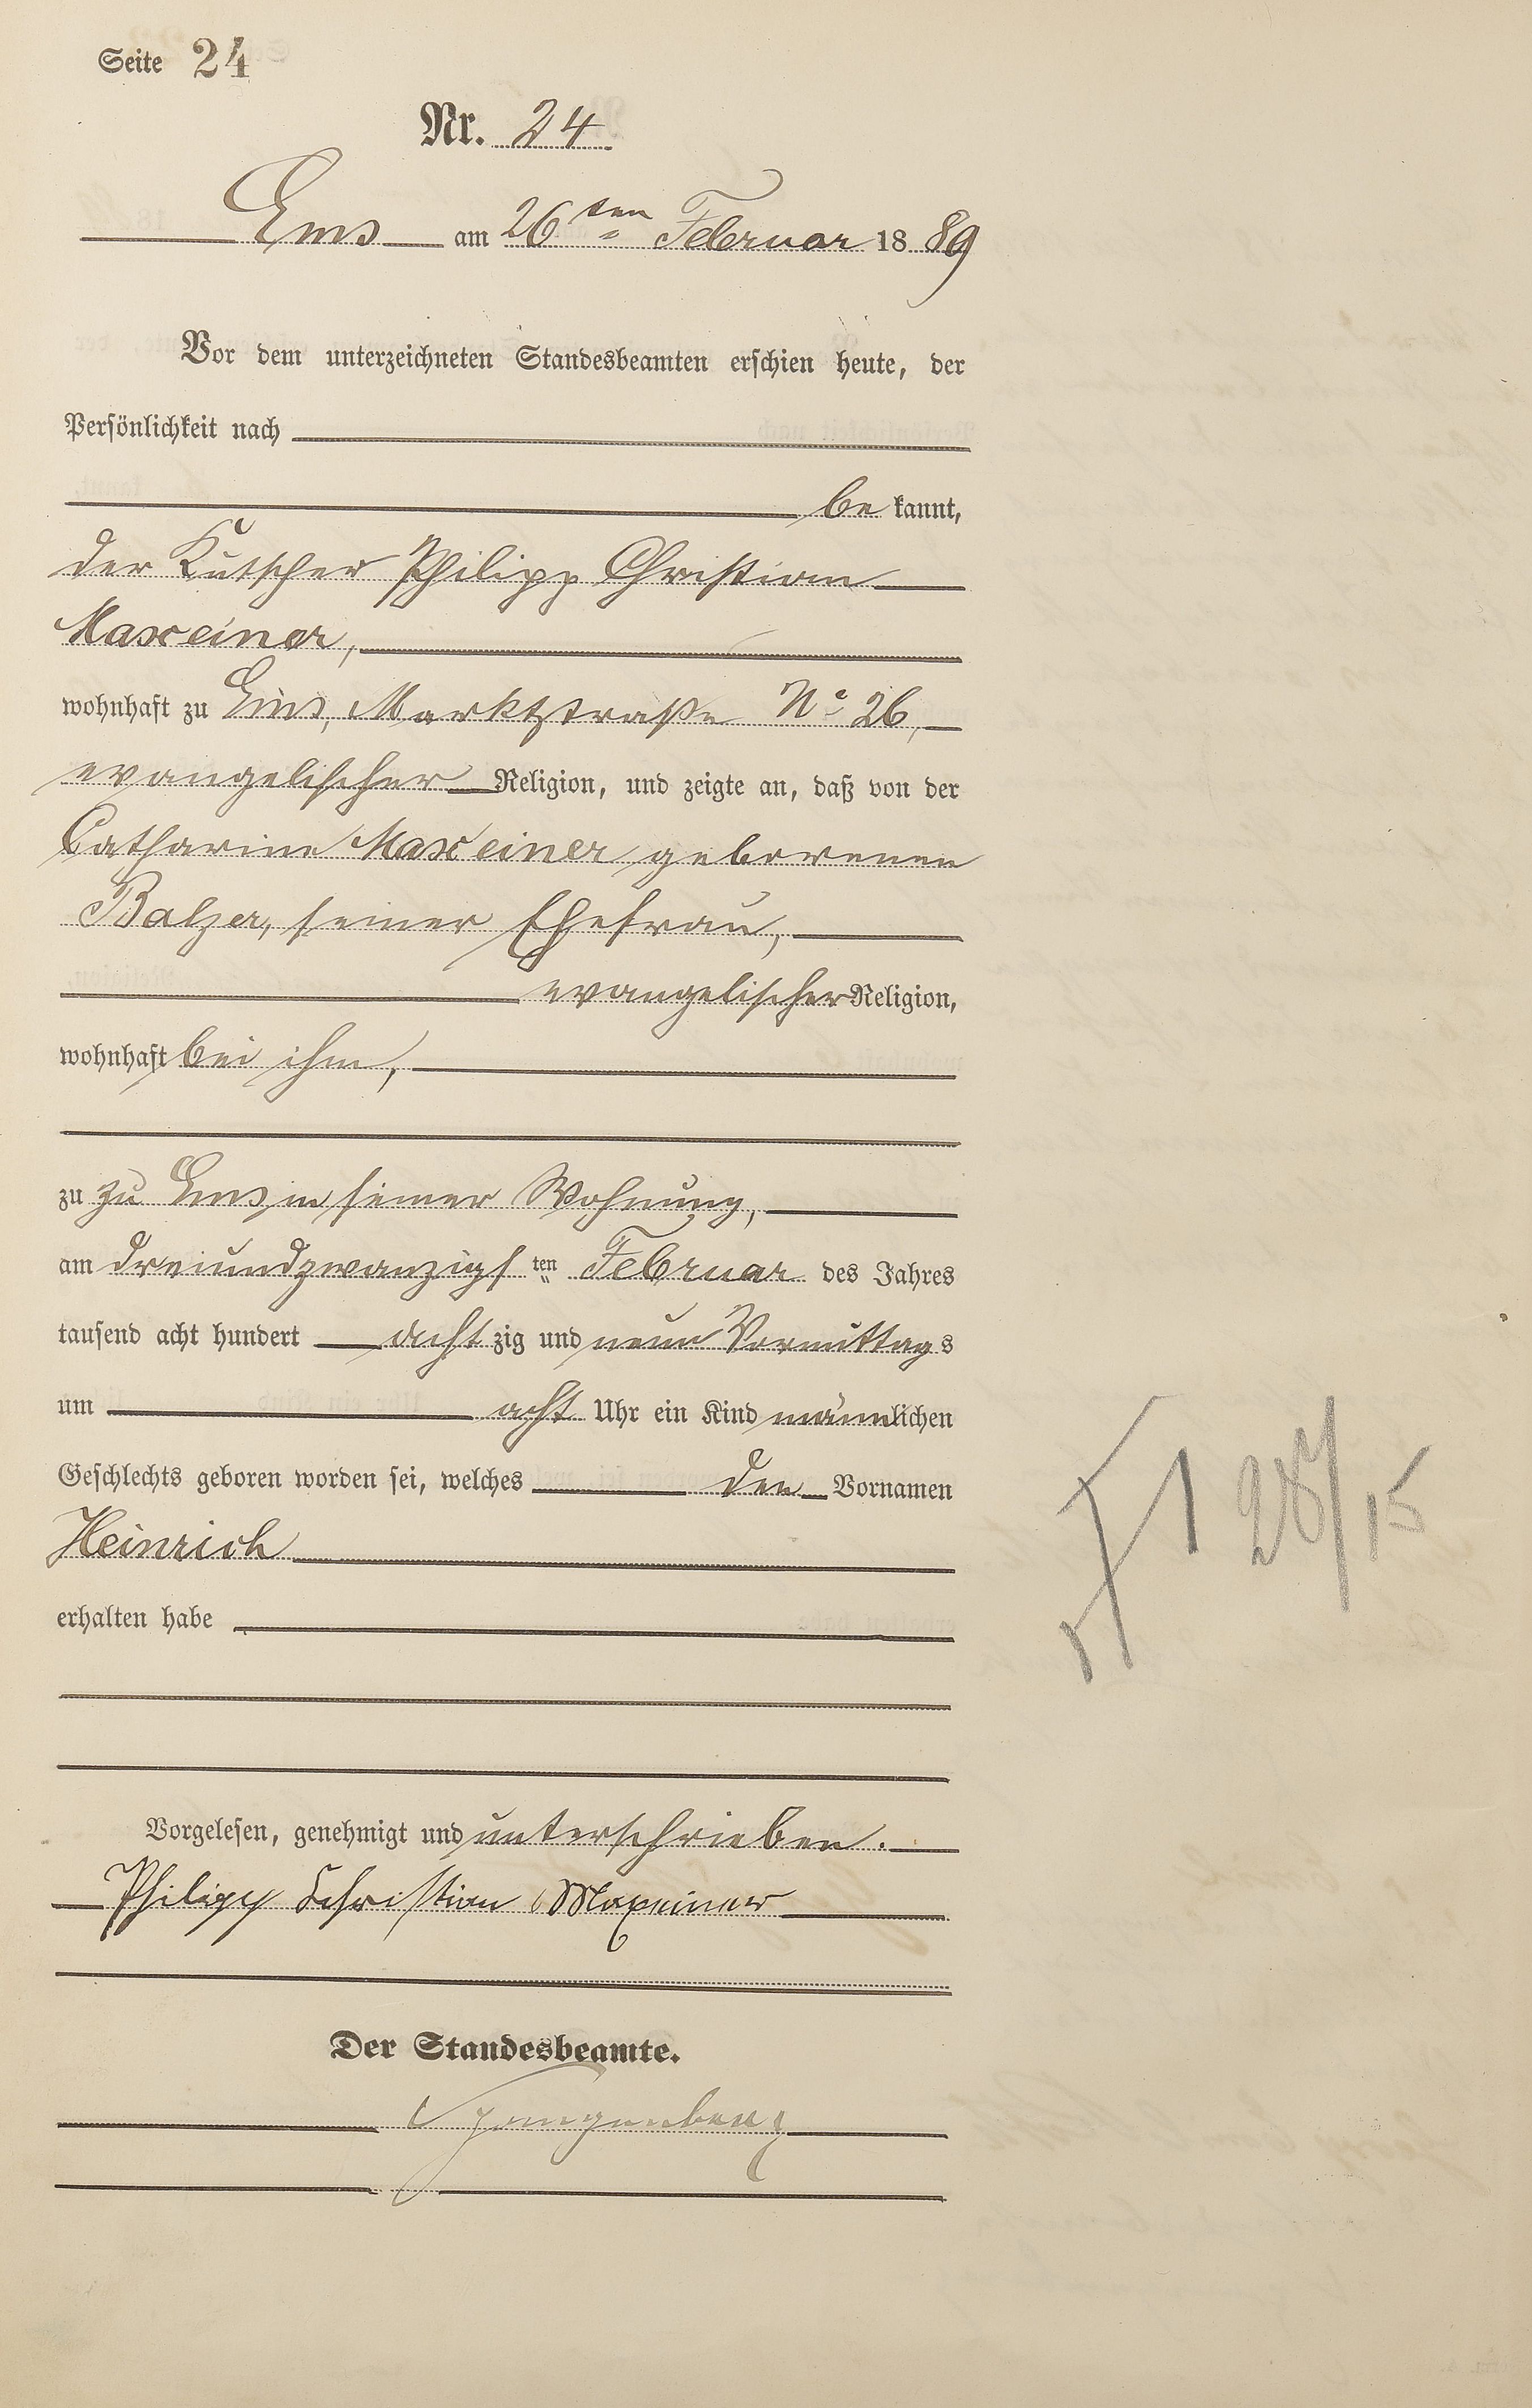 Seite 24
Nr. 24
Ems am 26ten Februar 1889
Vor dem unterzeichneten Standesbeamten erschien heute, der
Persönlichkeit nach
be kannt,
der Kutscher Philipp Christian
Maxeiner,
wohnhaft zu Ems, Marktstraße No 26,
evangelischer Religion, und zeigte an, daß von der
Catharine Maxeiner geborenen
Balzer, seiner Ehefrau,
evangelischer Religion,
wohnhaft bei ihm,
zu zu Ems in seiner Wohnung,
am dreiundzwanzigsten Februar des Jahres
tausend acht hundert acht zig und neun Vormittags
um acht Uhr ein Kind männlichen
Geschlechts geboren worden sei, welches den Vornamen
Heinrich
erhalten habe
Vorgelesen, genehmigt und unterschrieben.
Philipp Christian Maxeiner
Der Standesbeamte.